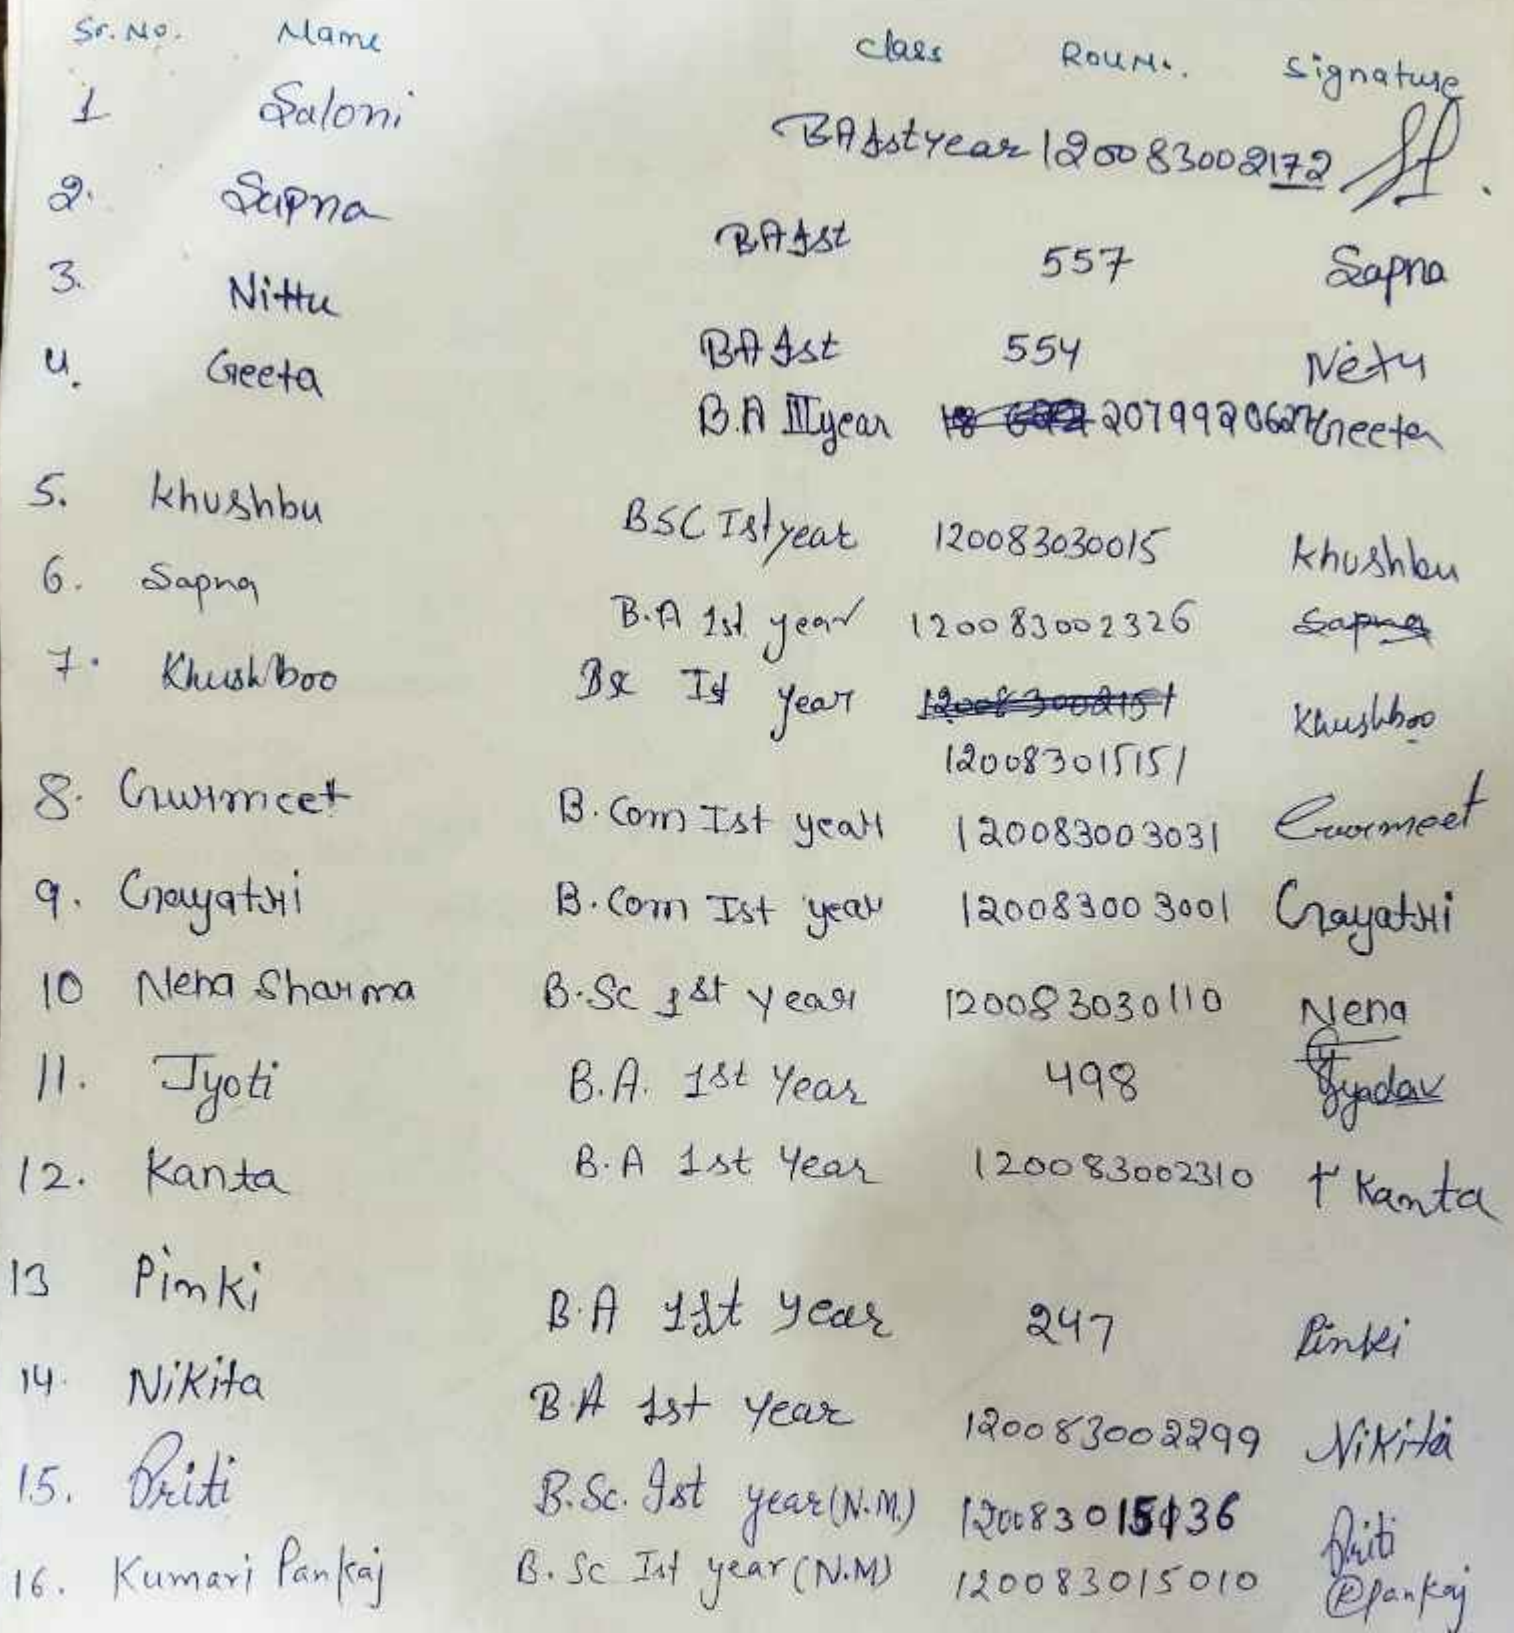 Sr. No. Name Class Roll No. Signature
1 Saloni BA Ist year 120083002172
2. Sapna BA Ist 557 Sapna
3. Nittu BA Ist 554 Netu
4. Geeta B.A III year 2079920627 Geeta
5. Khushbu BSC Ist year 120083030015 Khushbu
6. Sapna B.A 1st year 120083002326 Sapna
7. Khushboo BSc Ist year 120083002151 Khushboo
120083015151
8. Gurmeet B.Com Ist year 120083003031 Gurmeet
9. Gayatri B.Com Ist year 120083003001 Gayatri
10 Neha Sharma B.Sc 1st year 120083030110 Neha
11. Jyoti B.A. 1st Year 498 Jyadav
12. Kanta B.A 1st Year 120083002310 Kanta
13 Pinki B.A 1st year 247 Pinki
14. Nikita B.A 1st year 120083002299 Nikita
15. Priti B.Sc. Ist year (N.M.) 120083015136 Priti
16. Kumari Pankaj B.Sc Ist year (N.M) 120083015010 Pankaj